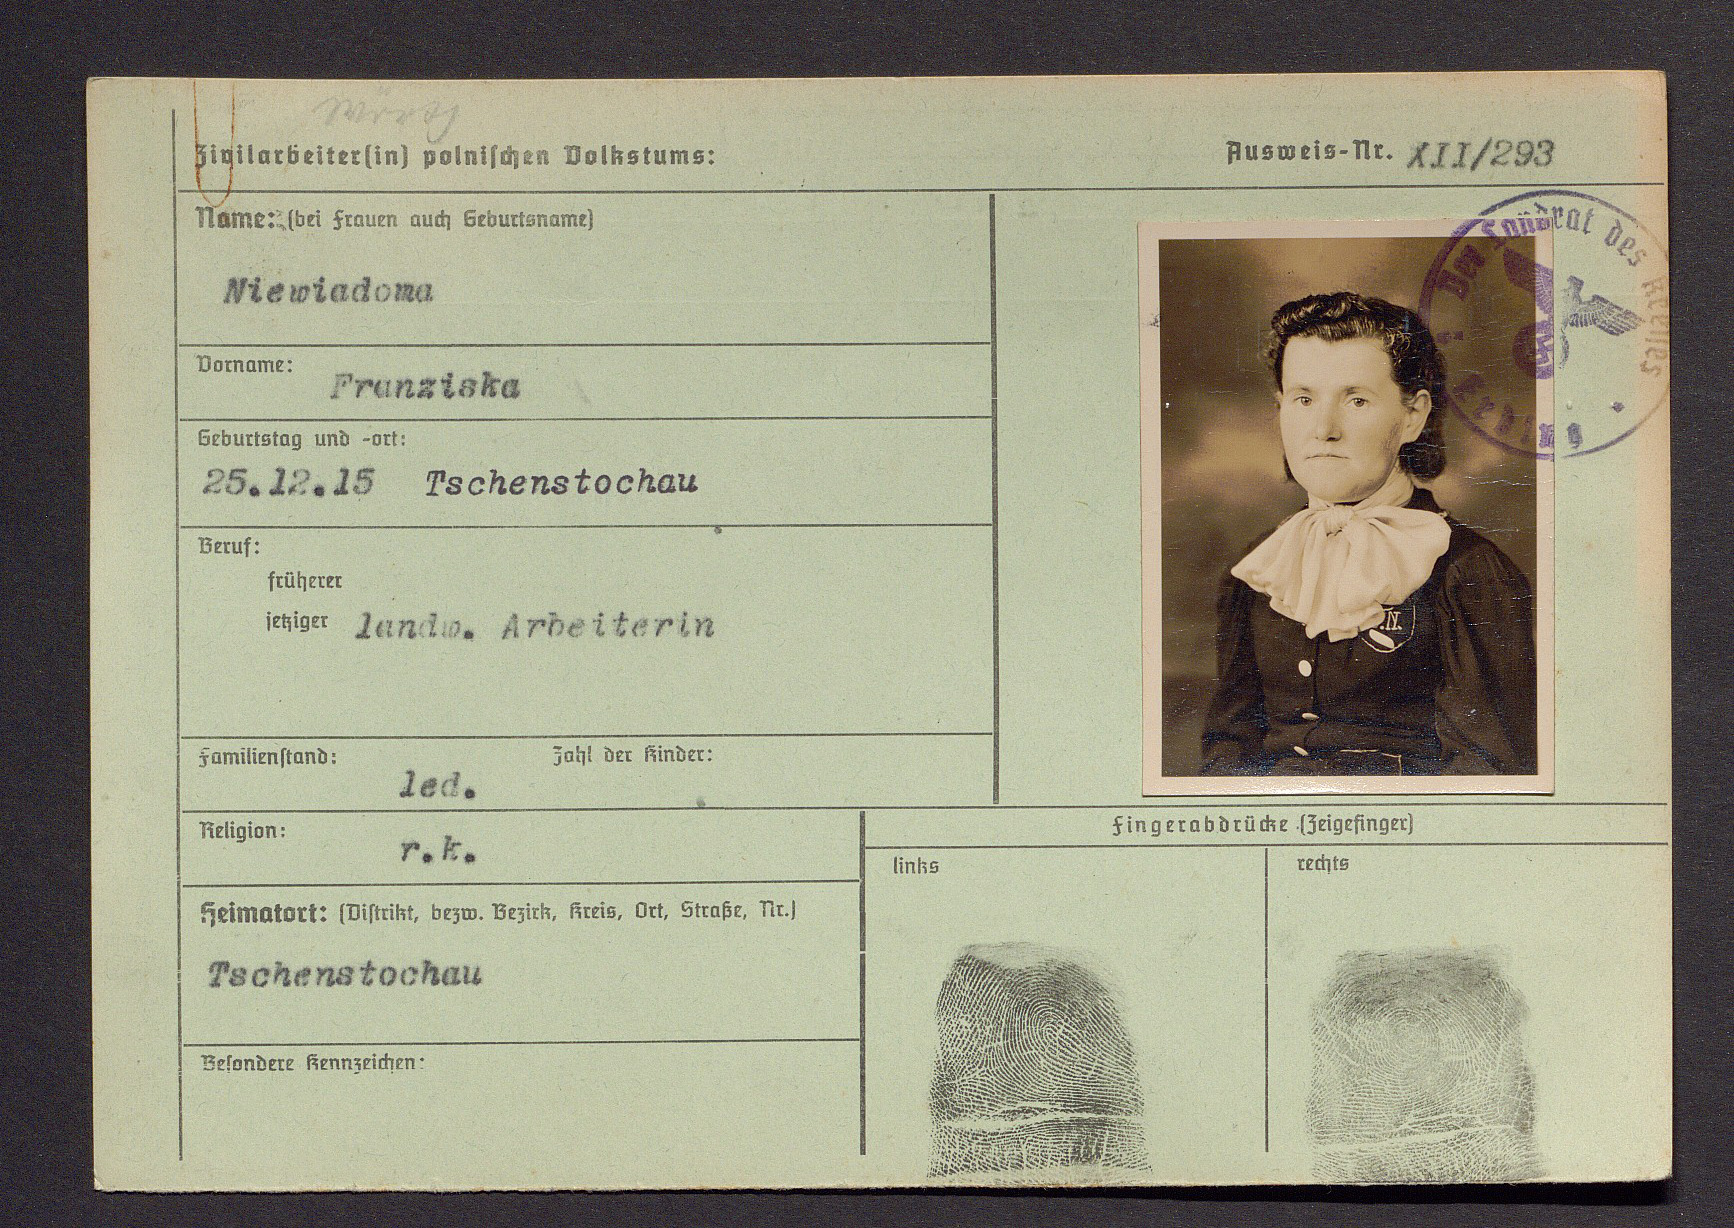 Zivilarbeiter(in) polnischen Volkstums:
Ausweis-Nr. XII/293
Name: (bei Frauen auch Geburtsname)
Niewiadoma
Vorname:
Franziska
Geburtstag und -ort:
25.12.15 Tschenstochau
Beruf:
früherer
jetziger landw. Arbeiterin
Familienstand: Zahl der Kinder:
led.
Religion:
r.k.
Heimatort: (Distrikt, bezw. Bezirk, Kreis, Ort, Straße, Nr.)
Tschenstochau
Besondere Kennzeichen:
Der Landrat des Kreises
Erding
.N.
Fingerabdrücke (Zeigefinger)
links
rechts